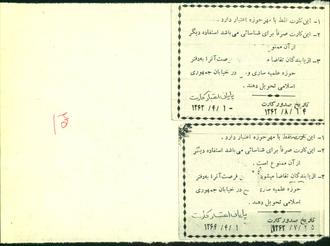 ۱- این کارت فقط با مهر حوزه اعتبار دارد .
۲- این کارت صرفاً برای شناسائی می باشد استفاده دیگر
از آن ممنوع
۳- از یابندگان تقاضا فرصت آنرا به دفتر
حوزه علمیه ساری در خیابان جمهوری
اسلامی تحویل دهند .
تاریخ صدور کارت پایان اعتبار کارت
۱- این کارت فقط با مهر حوزه اعتبار دارد .
۲- این کارت صرفاً برای شناسائی می باشد استفاده دیگر
از آن ممنوع است .
۳- از یابندگان تقاضا میشود فرصت آنرا به دفتر
حوزه علمیه ساری در خیابان جمهوری
اسلامی تحویل دهند .
تاریخ صدور کارت پایان اعتبار کارت